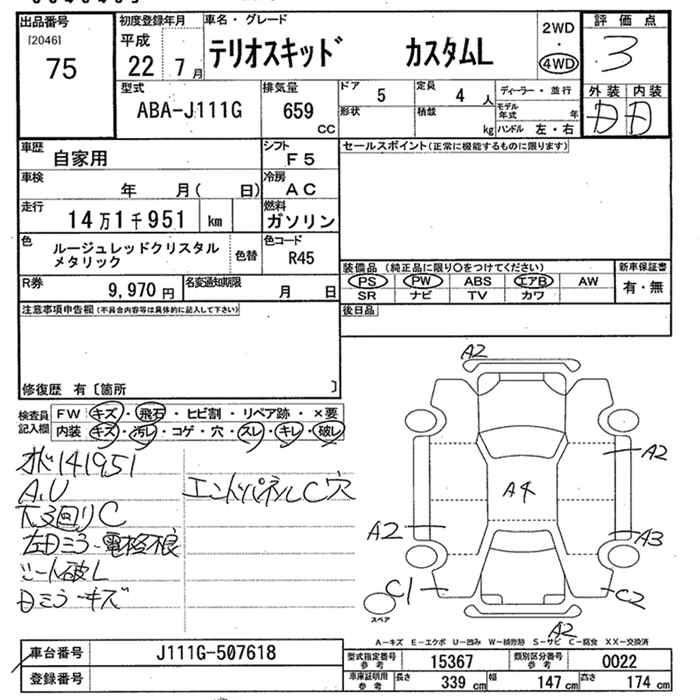 出品番号
[2046]
75
初度登録年月
平成
22 7月
車名・グレード
テリオスキッド カスタムL
2WD
4WD
評価点
3
外装 内装
D D
型式
ABA-J111G
排気量
659
CC
ドア
5
定員
4 人
形状
積載
kg
ディーラー・並行
モデル年式 年
ハンドル 左・右
車歴
自家用
シフト
F5
車検
年 月( 日)
冷房
AC
走行
14万1千951 km
燃料
ガソリン
色
ルージュレッドクリスタル
メタリック
色替
色コード
R45
R券
9,970 円
名変通知期限
月 日
セールスポイント(正常に機能するものに限ります)
装備品 (純正品に限り○をつけてください)
PS PW ABS エアB AW
SR ナビ TV カワ
新車保証書
有・無
後日品
注意事項申告欄(不具合内容等は具体的に記入して下さい)
修復歴 有〔箇所 〕
検査員
記入欄
FW キズ・飛石・ヒビ割・リペア跡・×要
内装 キズ・汚レ・コゲ・穴・スレ・キレ・破レ
オド141951
A.U
下廻リC
左Dミラー電格不良
シート破レ
Dミラーキズ
エンドパネルC穴
A2
A2
A4
A2
A3
C1
C2
A2
スペア
A-キズ E-エクボ U-凹み W-補修跡 S-サビ C-腐食 XX-交換済
車台番号
J111G-507618
登録番号
型式指定番号
参考
15367
類別区分番号
参考
0022
車庫証明用
参考
長さ 339 cm
幅 147 cm
高さ 174 cm